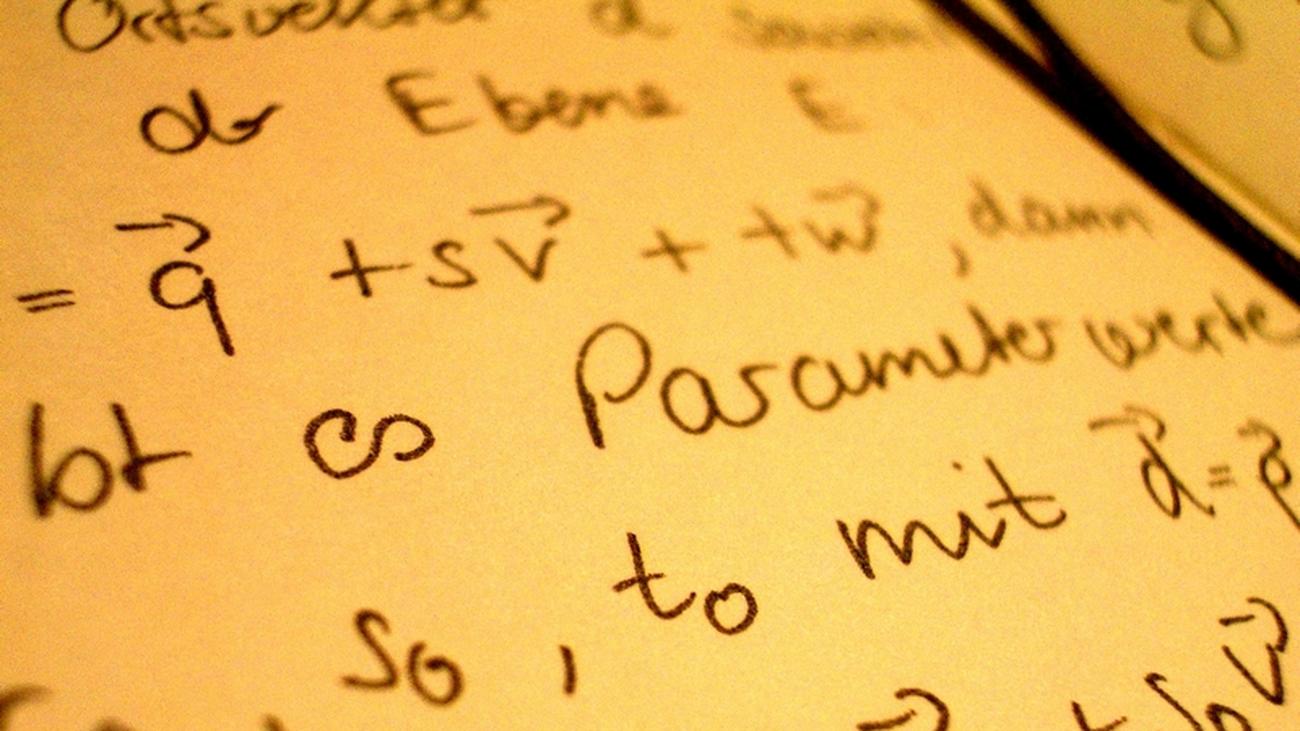 Ortsvektor d sowohl
der Ebene E
= q⃗ + s v⃗ + t w⃗ , dann
bt es Parameterwerte
s₀ , t₀ mit d⃗ = p⃗
+ s₀ v⃗